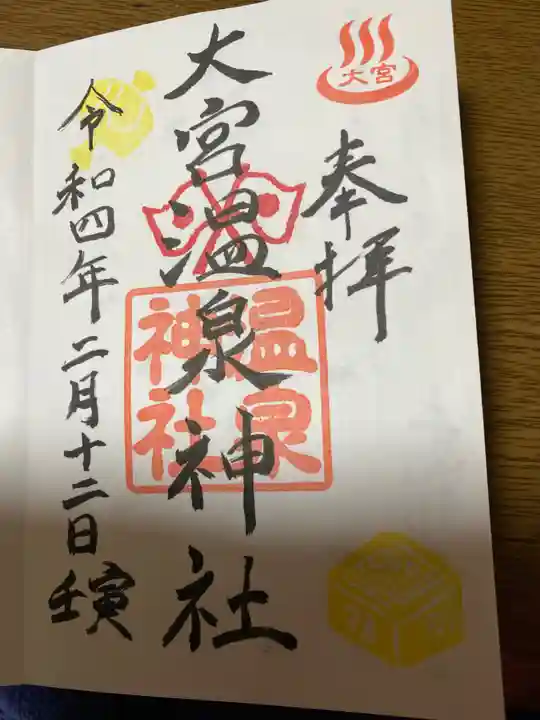 大宮
奉拝
大宮温泉神社
温泉
神社
令和四年二月十二日
壬寅